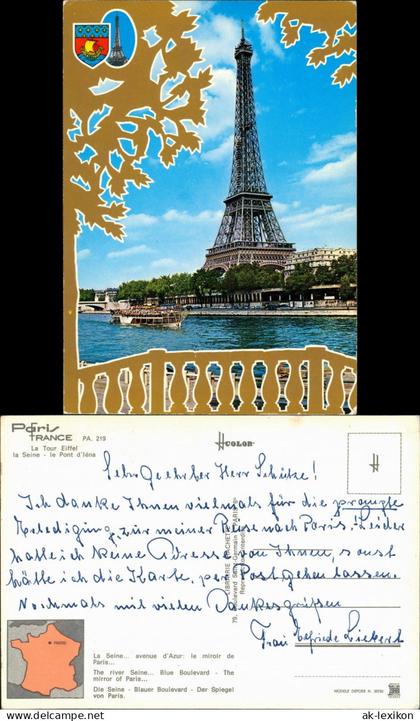 Paris
FRANCE PA. 219
La Tour Eiffel
la Seine - le Pont d'Iéna
COLOR
Sehr Geehrter Herr Schütze!
Ich danke Ihnen vielmals für die prompte
Erledigung, zur meiner Reise nach Paris. Leider
hatte ich keine Adresse von Ihnen, sonst
hätte ich die Karte, per Post gehen lassen.
Nochmals mit vielen Dankesgrüßen
Frau
LIBRAIRIE HACHETTE PARIS
79, Boulevard Saint-Germain
PARIS
La Seine... avenue d'Azur: le miroir de
Paris...
The river Seine... Blue Boulevard - The
mirror of Paris...
Die Seine - Blauer Boulevard - Der Spiegel
von Paris.
MODELE DEPOSE N.
© ak-lexikon
ak-lexikon.de